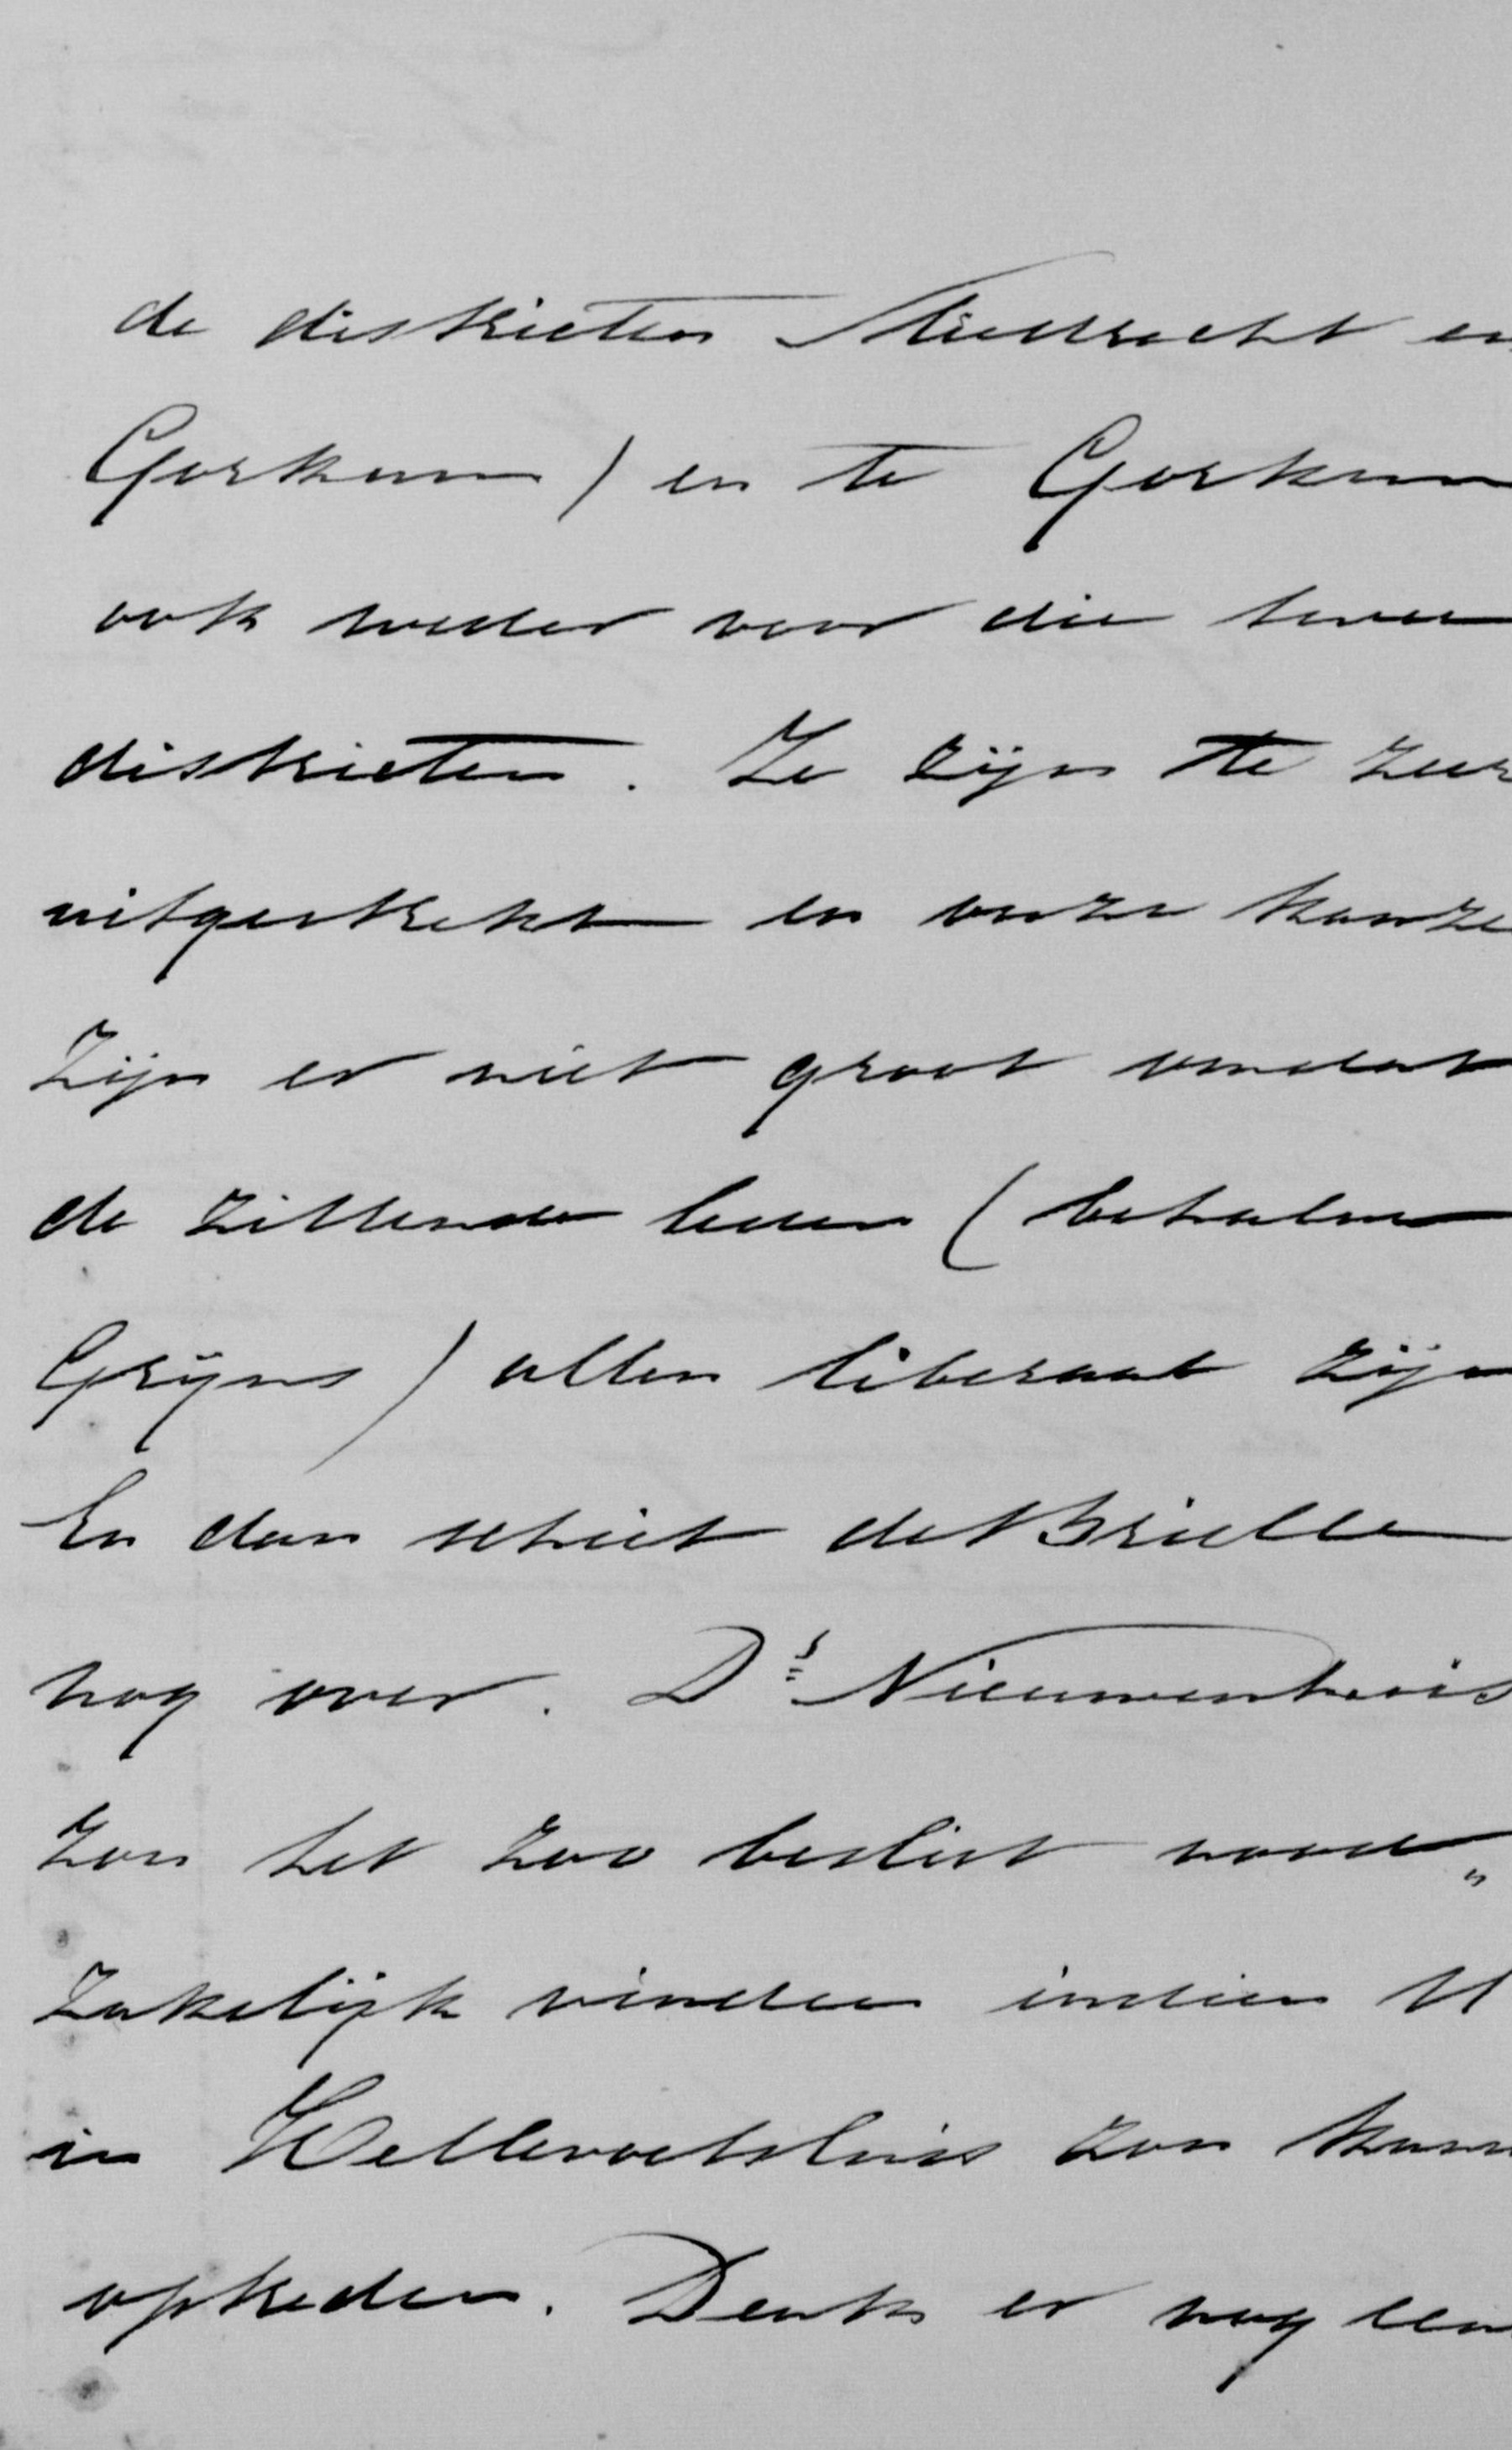 de districten Sliedrecht en
Gorkum) en te Gorkum
ook weder voor die twee
districten. Ze zijn te zeer
uitgestrekt en onze kanze
zijn er niet groot omdat
de zittende leden (behalve
Grijns) allen liberaal zijn
En dan schiet de Brielle
nog over. Ds Nieuwenhuis
zou het zoo beslist nood„
zakelijk vinden indien U
in Hellevoetsluis zou kunn
optreden. Denk er nog een